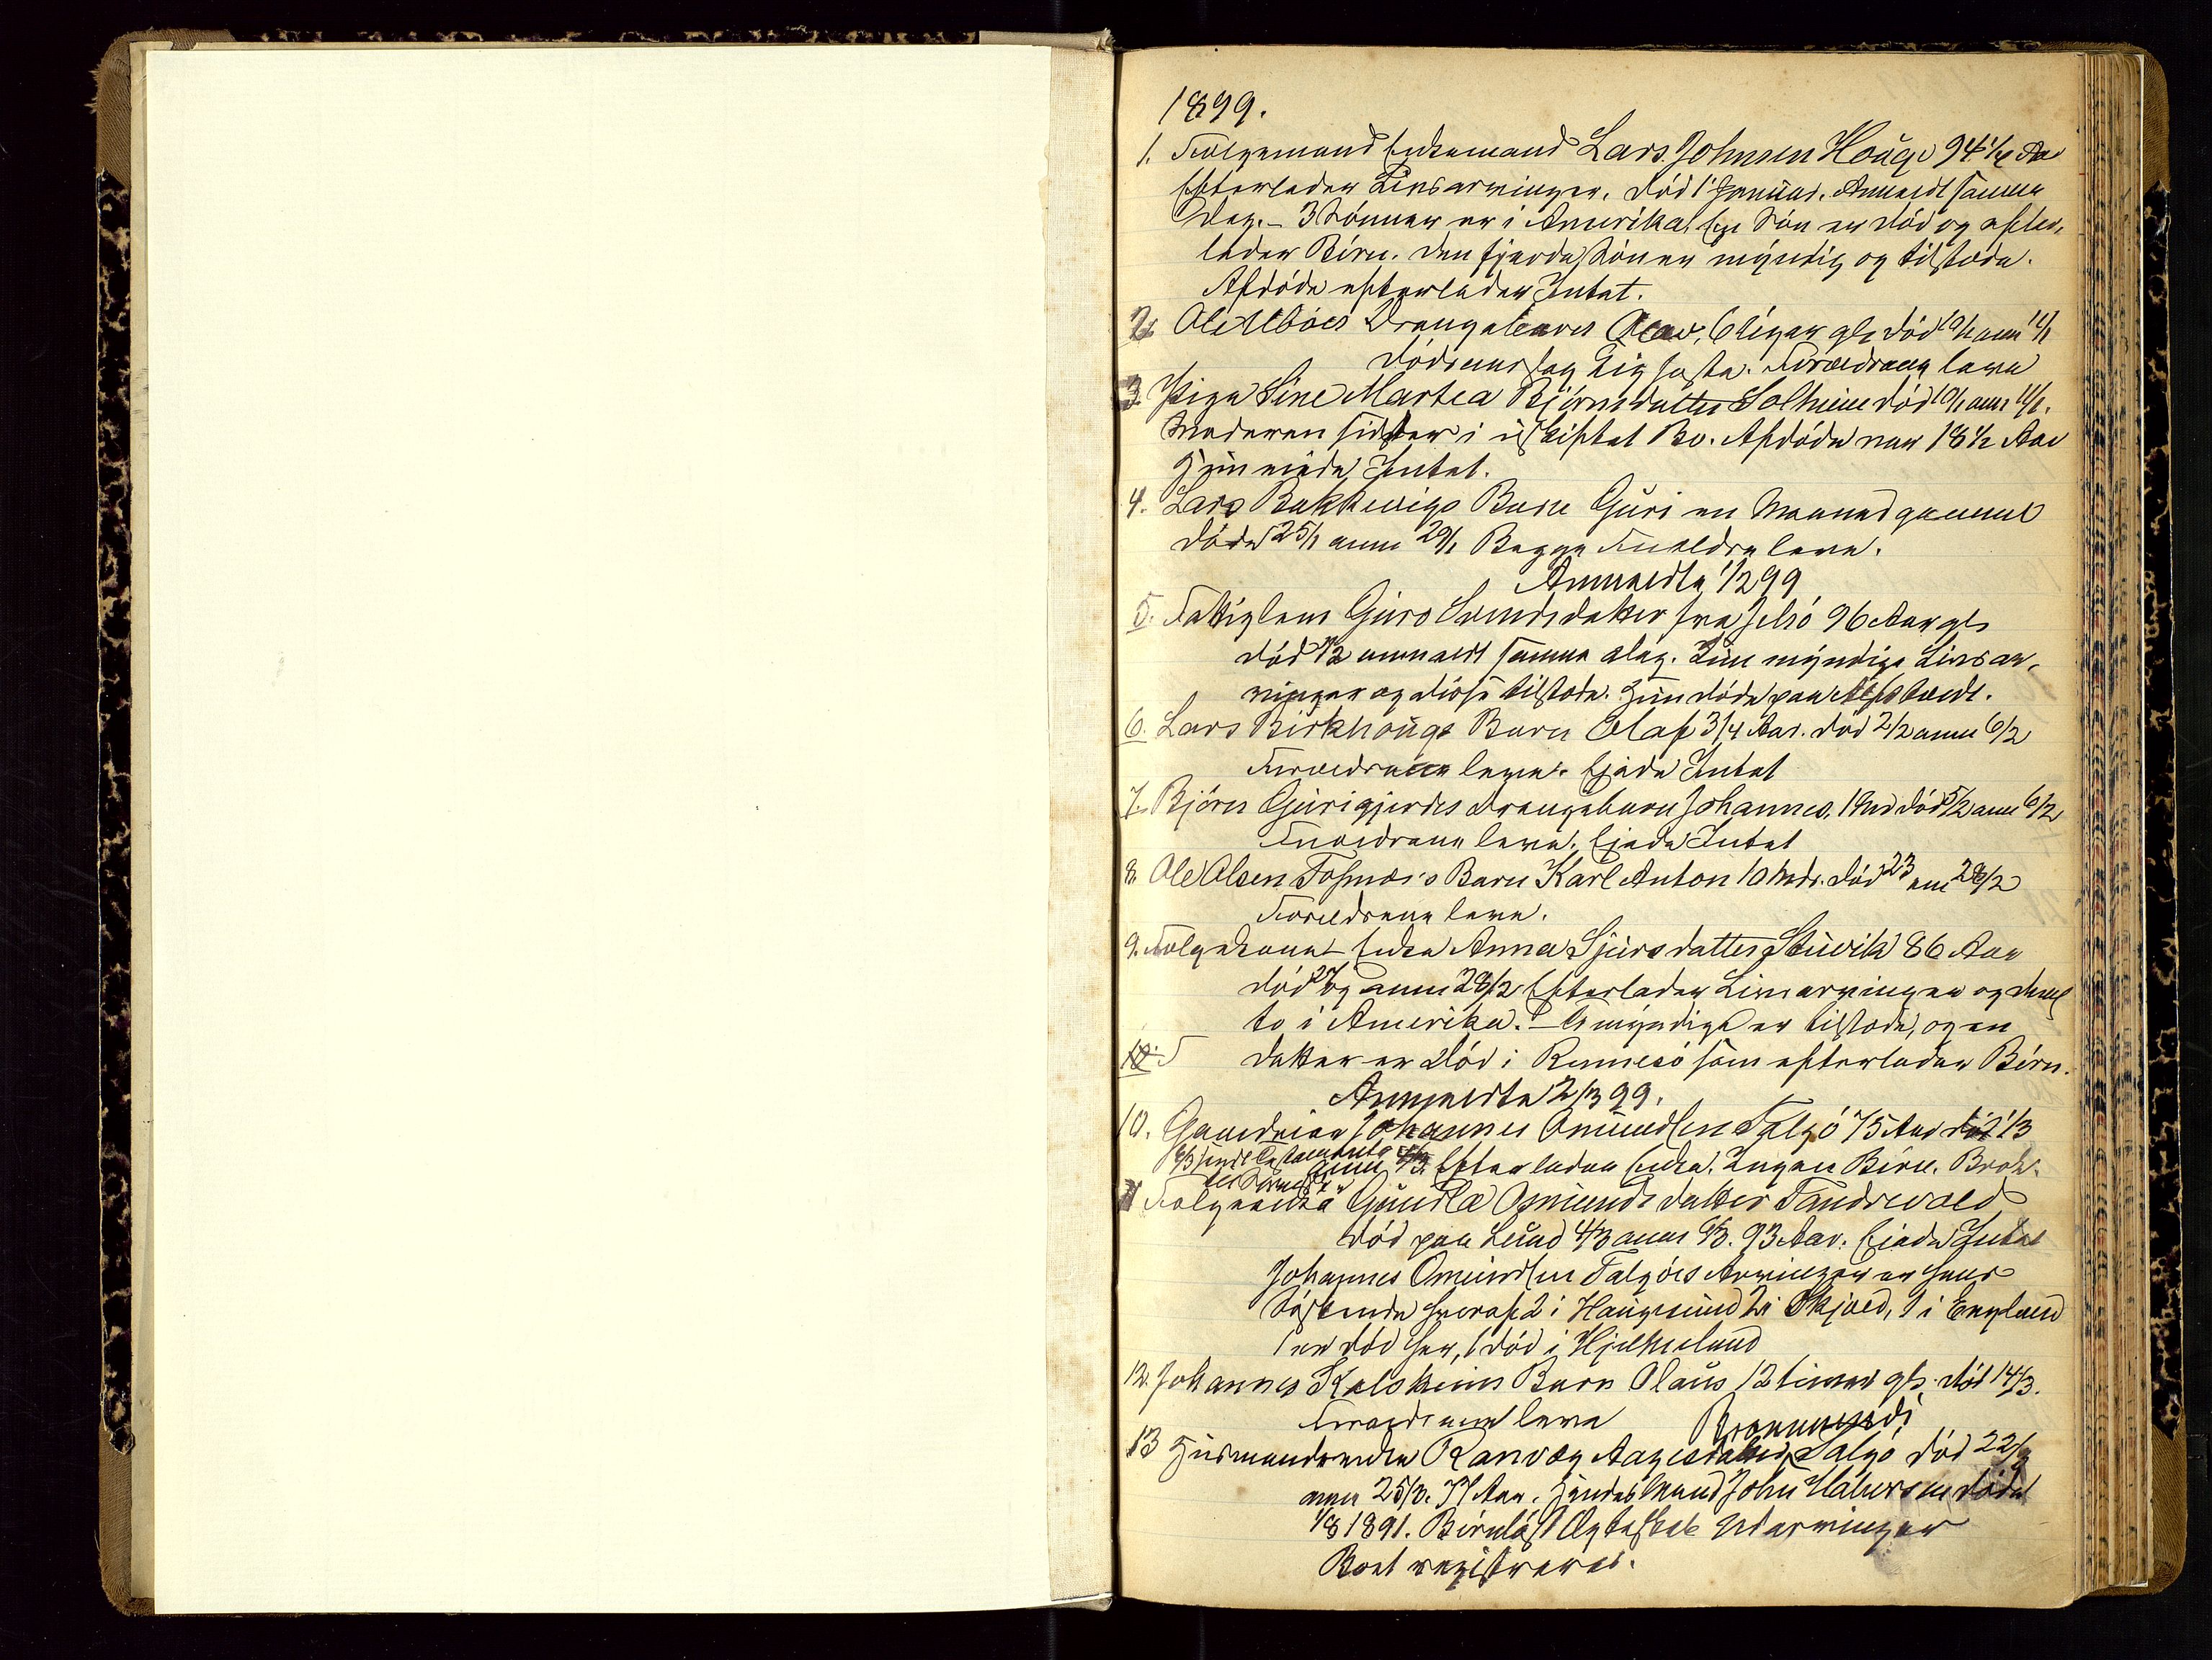 1899.
1. Folgemand Enkemand Lars Johnsen Houge 94 1/4 Aar
Efterlader Livsarvinger. Død 1 Januar. Anmeldt samme
Dag. - 3 Sønner er i Amerika. En Søn er død og efter,
lader Børn. Den fjerde Søn er myndig og tilstede.
Afdøde efterlader Intet.
2. Ole Døes Drengebarn Olav, 6 Uger gl. død 10/1 anm 14/1
Forældrene leve
3. Pige Sine Martea Bjørnsdatter Solheim død 10/1 anm 14/1.
Moderen sidder i uskiftet Bo. Afdøde var 18 1/2 Aar
Hun eiede Intet.
4. Lars Bakkevigs Barn Guri en Maaned gammel
døde 25/1 anm 29/1 Begge Forældre leve.
Anmeldte 1/2 99
5. Fattiglem Guro Svendsdatter fra Jelsø 96 Aar gl.
død 1/2 anmeldt samme Dag. Kun myndige Livsar,
vinger og disse tilstede. Hun døde paa
6. Lars Birkhougs Barn Olaf 3/4 Aar. død 2/2 anm 6/2
Forældrene leve. Eiede Intet
7. Bjørn Gurigjerdes Drengebarn Johannes, 1 Md død 5/2 anm 6/2
Forældrene leve. Eiede Intet
8. Ole Olsen Fosnæs's Barn Karl Anton 10 Mdr. død 23 anm 28/2
Forældrene leve.
9. Folgekone Enke Anna Sjursdatter Stuvik 86 Aar
død 27/2 anm 28/2 Efterlader Livsarvinger og deraf
to i Amerika. - 6 myndige er tilstede, og en
Datter er død i Rennesø som efterlader Børn.
Anmeldte 2/3 99.
10. Gaardeier Johannes Omundsen Talgø 75 Aar død 1/3
anm 4/3. Efterlader Enke. Ingen Børn.
Folgeenke Gunilæ Osmundsdatter Tandrevold
død paa Lund 4/3 anm 6/3. 93 Aar. Eiede Intet
Johannes Omundsen Talgøes Arvinger er hans
Søskende hvoraf 2 i Haugesund 2 i Skjold, 1 i England
1 er død her, 1 død i Hjelmeland
12. Johannes Kalsheims Barn Olaus 12 timer gl. død 14/3.
Forældrene leve
13 Husmandsenke Ranvæg Aagesdatter Talgø død 22/3
anm 25/3. 77 Aar. Hendes Mand John Halvorsen døde
1/8 1891. Børnløst Ægteskab Udarvinger
Boet registreres.